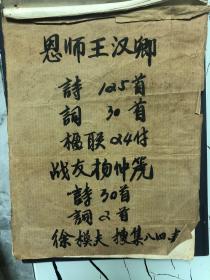 恩师王汉卿
詩 125首
詞 30首
楹联 24付
战友杨仲筅
詩 30首
詞 2首
徐模夫 搜集八四年